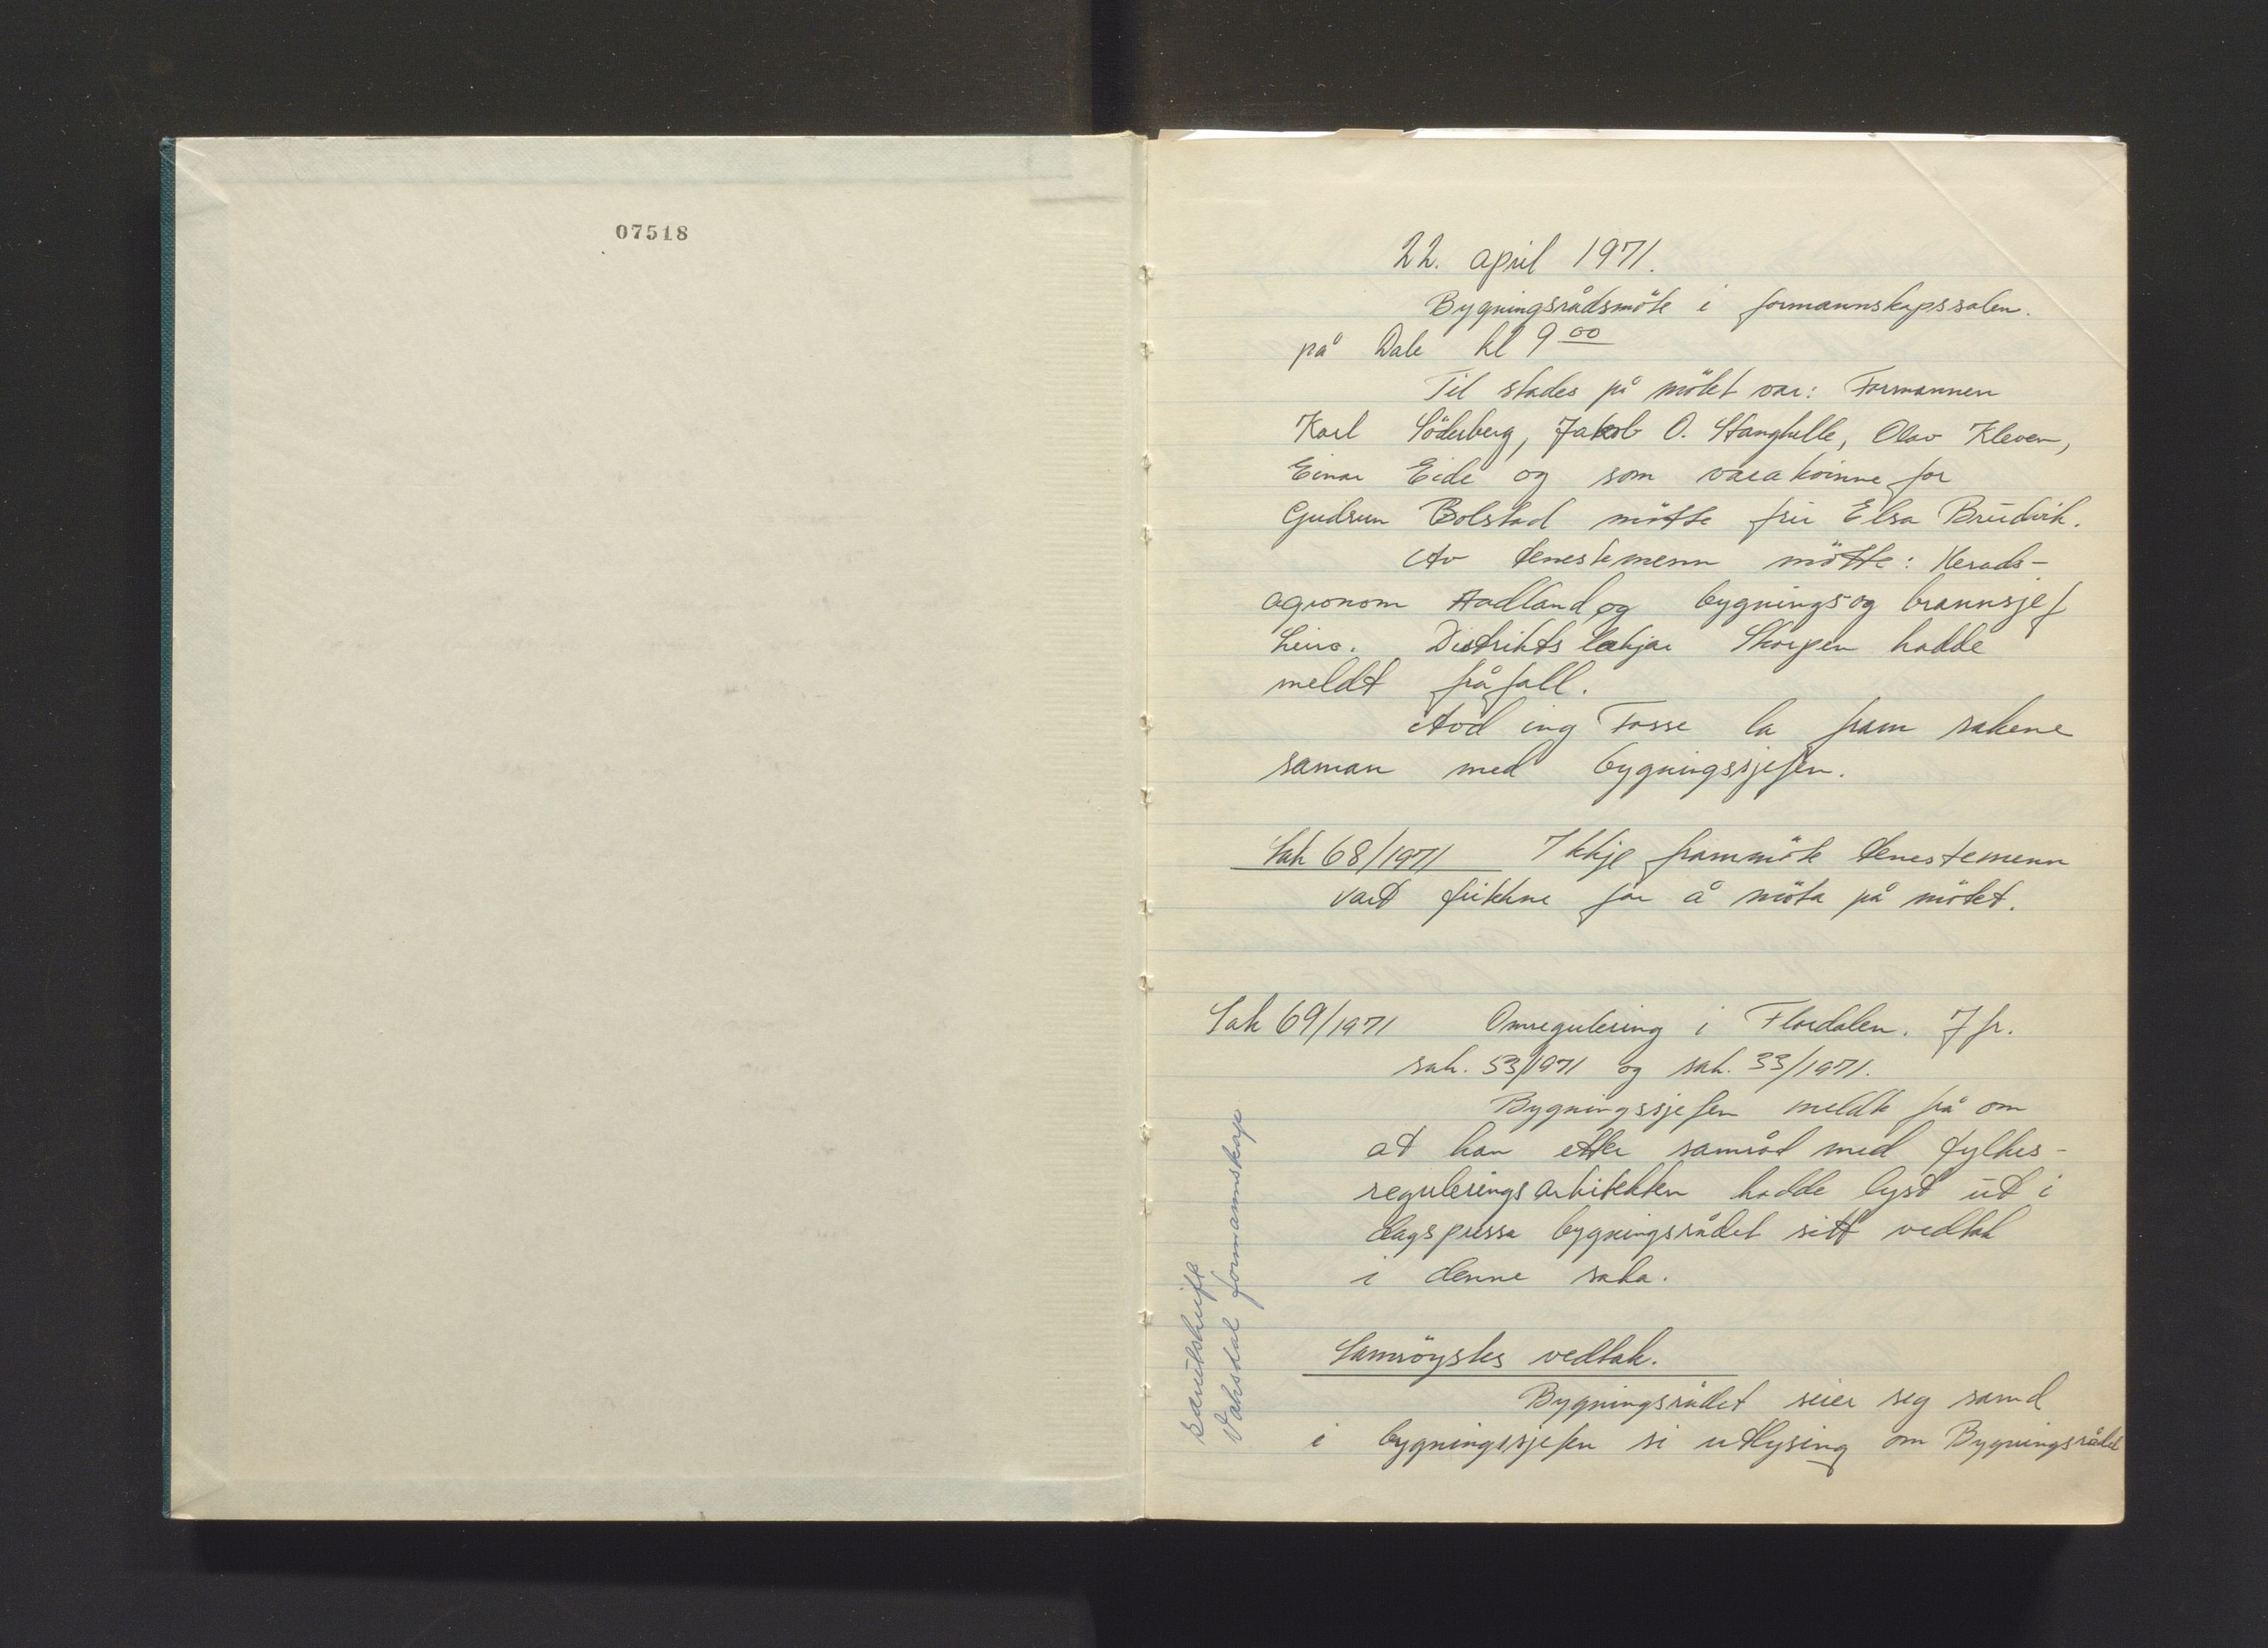 07518
22. april 1971.
Bygningsrådsmöte i formannskapssalen.
på Dale kl 9 00
Til stades på mötet var: Formannen
Karl Söderberg, Jakob O. Stanghelle, Olav Kleven,
Einar Eide og som varakvinne for
Gudrun Bolstad mötte frü Elsa Brüdvik.
Av tenestemenn mötte: Herads-
agronom Aadland og bygnings og brannsjef
Distrikts lækjar Skorpen hadde
meldt fråfall.
Avd ing Fosse la fram sakene
saman med bygningssjefen.
Sak 68/1971 Ikkje frammöte tenestemenn
vart for å möta på mötet.
Sak 69/1971 Omregulering i Flordalen. Jfr.
sak. 53/1971 og sak. 33/1971.
Bygningssjefen meldte frå om
at han etter samråd med fylkes-
reguleringsarkitekten hadde lyst üt i
dagspressa bygningsrådet sitt vedtak
i denne saka.
Samröystes vedtak.
Bygningsrådet seier seg samd
i bygningssjefen si utlysing om Bygningsrådet
Særütskrift
Vaksdal formannskap